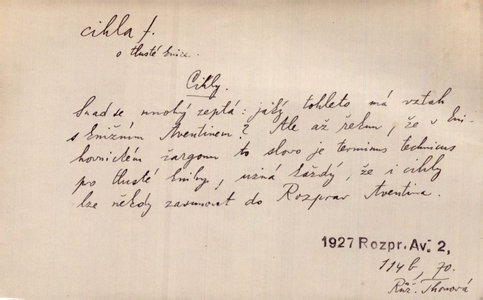 cihla f.
o tlusté knize.
Cihly.
Snad se mnohý zeptá: jaký tohleto má vztah
s knižním Aventinem? Ale až řeknu, že v kni-
hovnickém žargonu to slovo je terminus technicus
pro tlusté knihy, uzná každý, že i cihly
lze někdy zasunovat do Rozprav Aventina.
1927 Rozpr. Av. 2,
114b, 70.
Růž. Thonová